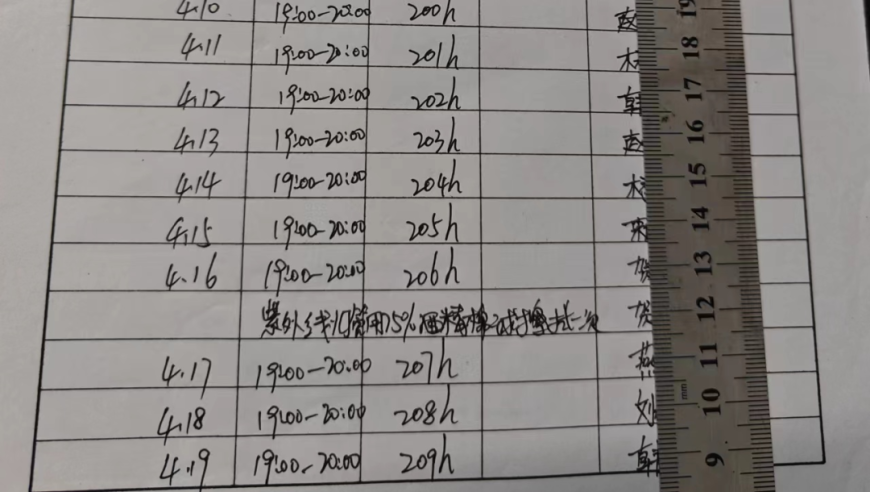 4.10 19:00-20:00 200h
4.11 19:00-20:00 201h
4.12 19:00-20:00 202h
4.13 19:00-20:00 203h
4.14 19:00-20:00 204h
4.15 19:00-20:00 205h
4.16 19:00-20:00 206h 贺
紫外线灯管用75%酒精棉球擦拭一次 贺
4.17 19:00-20:00 207h 燕
4.18 19:00-20:00 208h 刘
4.19 19:00-20:00 209h
19
18
17
16
15
14
13
12
11
mm
10
9